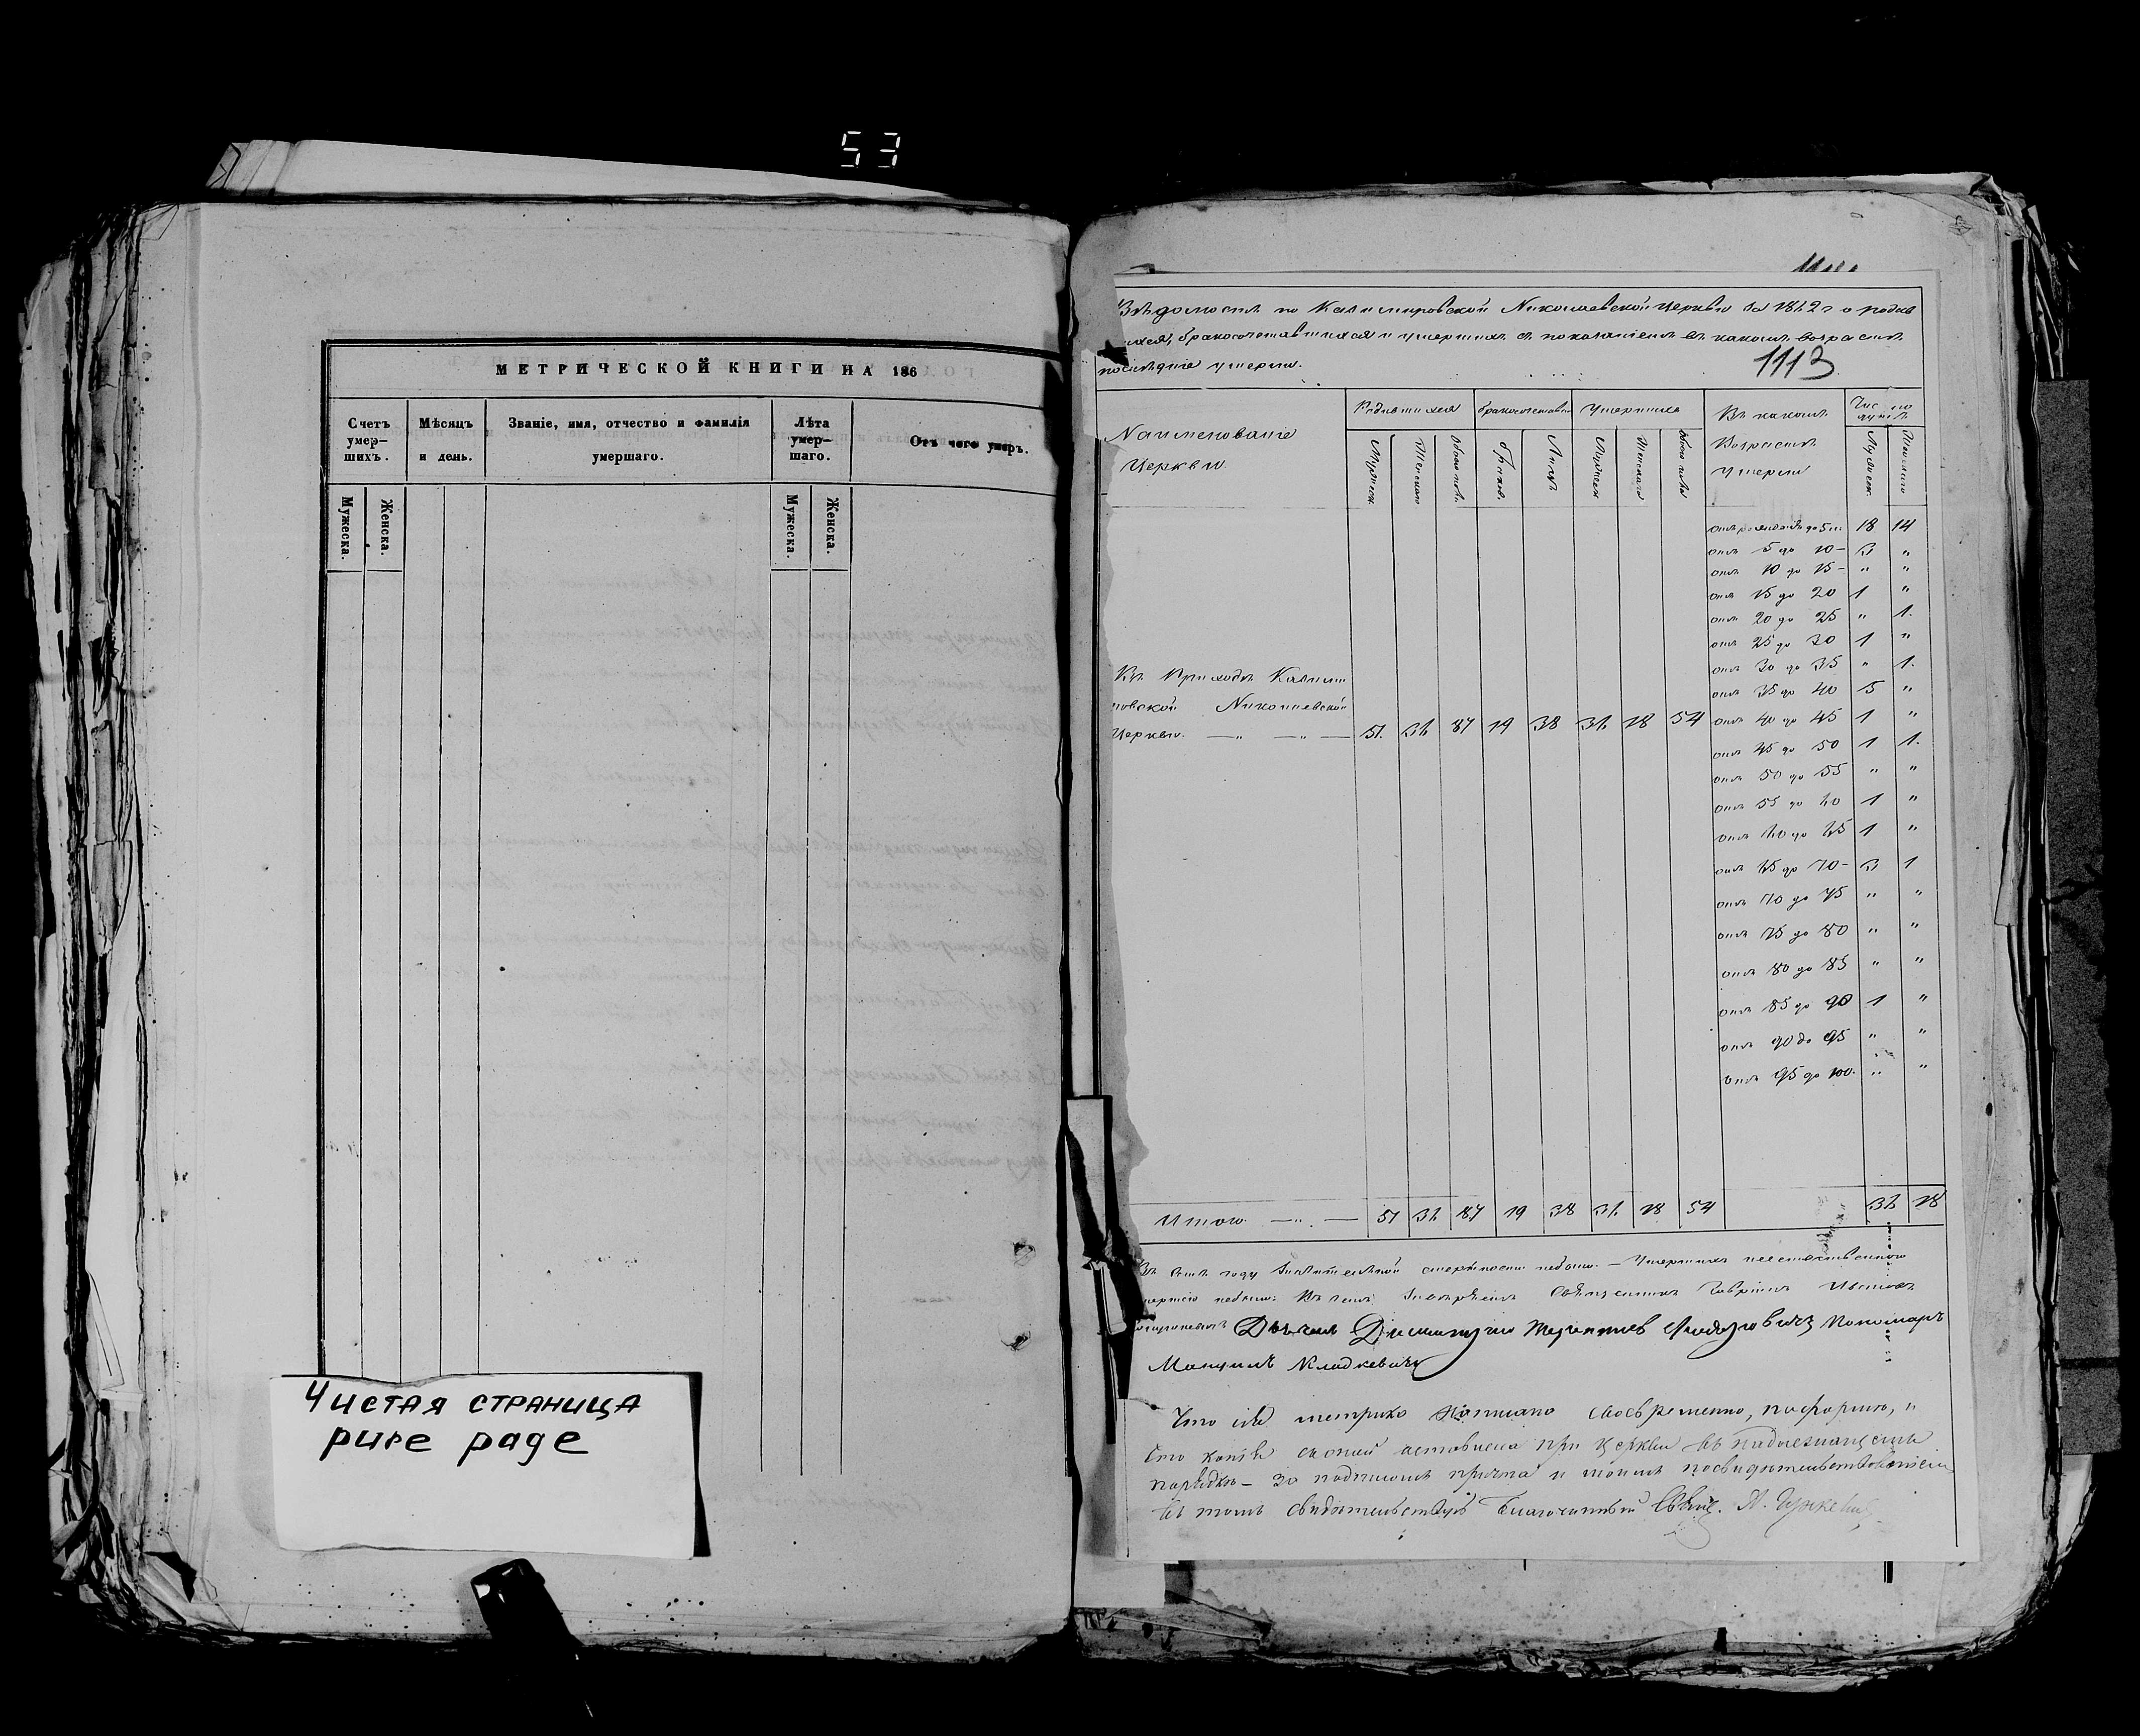 53
МЕТРИЧЕСКОЙ КНИГИ НА 186
Счетъ умер-шихъ.
Мѣсяцъ и день.
Званіе, имя, отчество и фамилія умершаго.
Лѣта умер-шаго.
Отъ чего умеръ.
Мужеска.
Женска.
Мужеска.
Женска.
Чистая страница
pure page
Вѣдомость по Казимировской Николаевской Церкви за 1862 г о родив
шихся, бракосочетавшихся и умершихъ съ показаніемъ въ какомъ возрастѣ
послѣдніе умерли.
1113
Наименованіе Церкви.
Родившихся
бракосочетавш
Умершихъ
Въ какомъ Возрастѣ умерли
Мужеск.
Женскаго
Обоего пол.
Браков.
Лицъ
Мужеск
Женскаго
Обоего пола
Мужеск.
Женскаго
отъ рожденія до 5 18 14
отъ 5 до 10 - 3 "
отъ 10 до 15 - " "
отъ 15 до 20 1 "
отъ 20 до 25 " 1.
отъ 25 до 30 1 "
отъ 30 до 35 " 1.
отъ 35 до 40 5 "
отъ 40 до 45 1 "
отъ 45 до 50 1 1.
отъ 50 до 55 " "
отъ 55 до 60 1 "
отъ 60 до 65 1 "
отъ 65 до 70 - 3 1
отъ 70 до 75 " "
отъ 75 до 80 " "
отъ 80 до 85 " "
отъ 85 до 90 1 "
отъ 90 до 95 " "
отъ 95 до 100. " "
Въ Приходѣ Казими
ровской Николаевской
Церкви. — " — " — 51. 36 87 19 38 36 18 54
Итого — " — 51 36 87 19 38 36 18 54 36 18
Въ семъ году значительной смертности небыло. — Умершихъ неестественною
смертію небыло. Въ чемъ Священникъ Гавріилъ
Дьячекъ Димитрій Пономарь
Мануилъ Кладкевичъ
Что сія метрика написана своевременно, по формѣ, и
что копія съ оной оставлена при церкви въ надлежащемъ
порядкѣ — за подписомъ причта и моимъ посвидѣтельствованіемъ
въ томъ свидѣтельствую Благочинный Свящ.